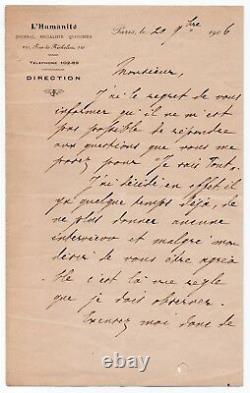 L'Humanité
JOURNAL SOCIALISTE QUOTIDIEN
Rue de Richelieu
TÉLÉPHONE 102-69
DIRECTION
Paris, le 20 9bre 1906
Monsieur,
J'ai le regret de vous
informer qu'il ne m'est
pas possible de répondre
aux questions que vous me
posez pour Je sais Tout.
J'ai décidé en effet il
y a quelque temps déjà, de
ne plus donner aucune
interview et malgré mon
désir de vous être agréa
ble c'est là une règle
que je dois observer.
Excusez moi donc de